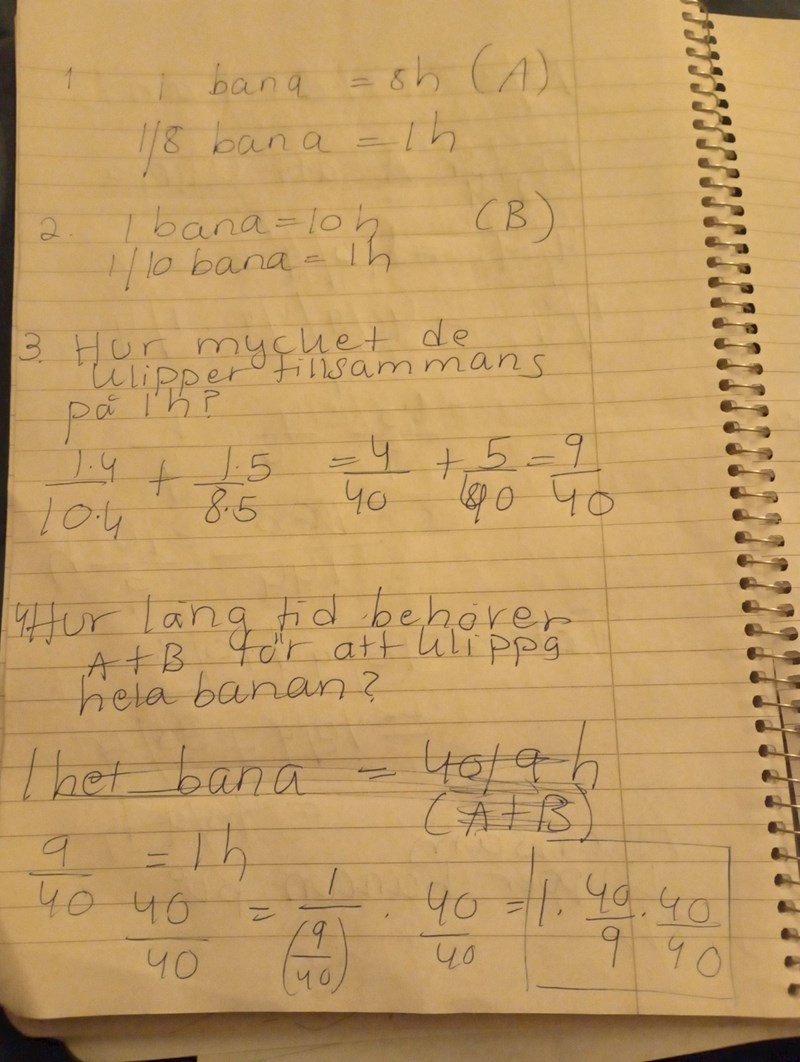 1 1 bana = 8h (A)
1/8 bana = 1h
2. 1 bana = 10h (B)
1/10 bana = 1h
3. Hur mycket de
klipper tillsammans
på 1h?
1·4/10·4 + 1·5/8·5 = 4/40 + 5/40 = 9/40
4. Hur lång tid behöver
A+B för att klippa
hela banan?
1 hel bana = 40/9 h
(A+B)
9/40 = 1h
40/40 = 1/(9/40) · 40/40 = 1 · 40/9 · 40/40